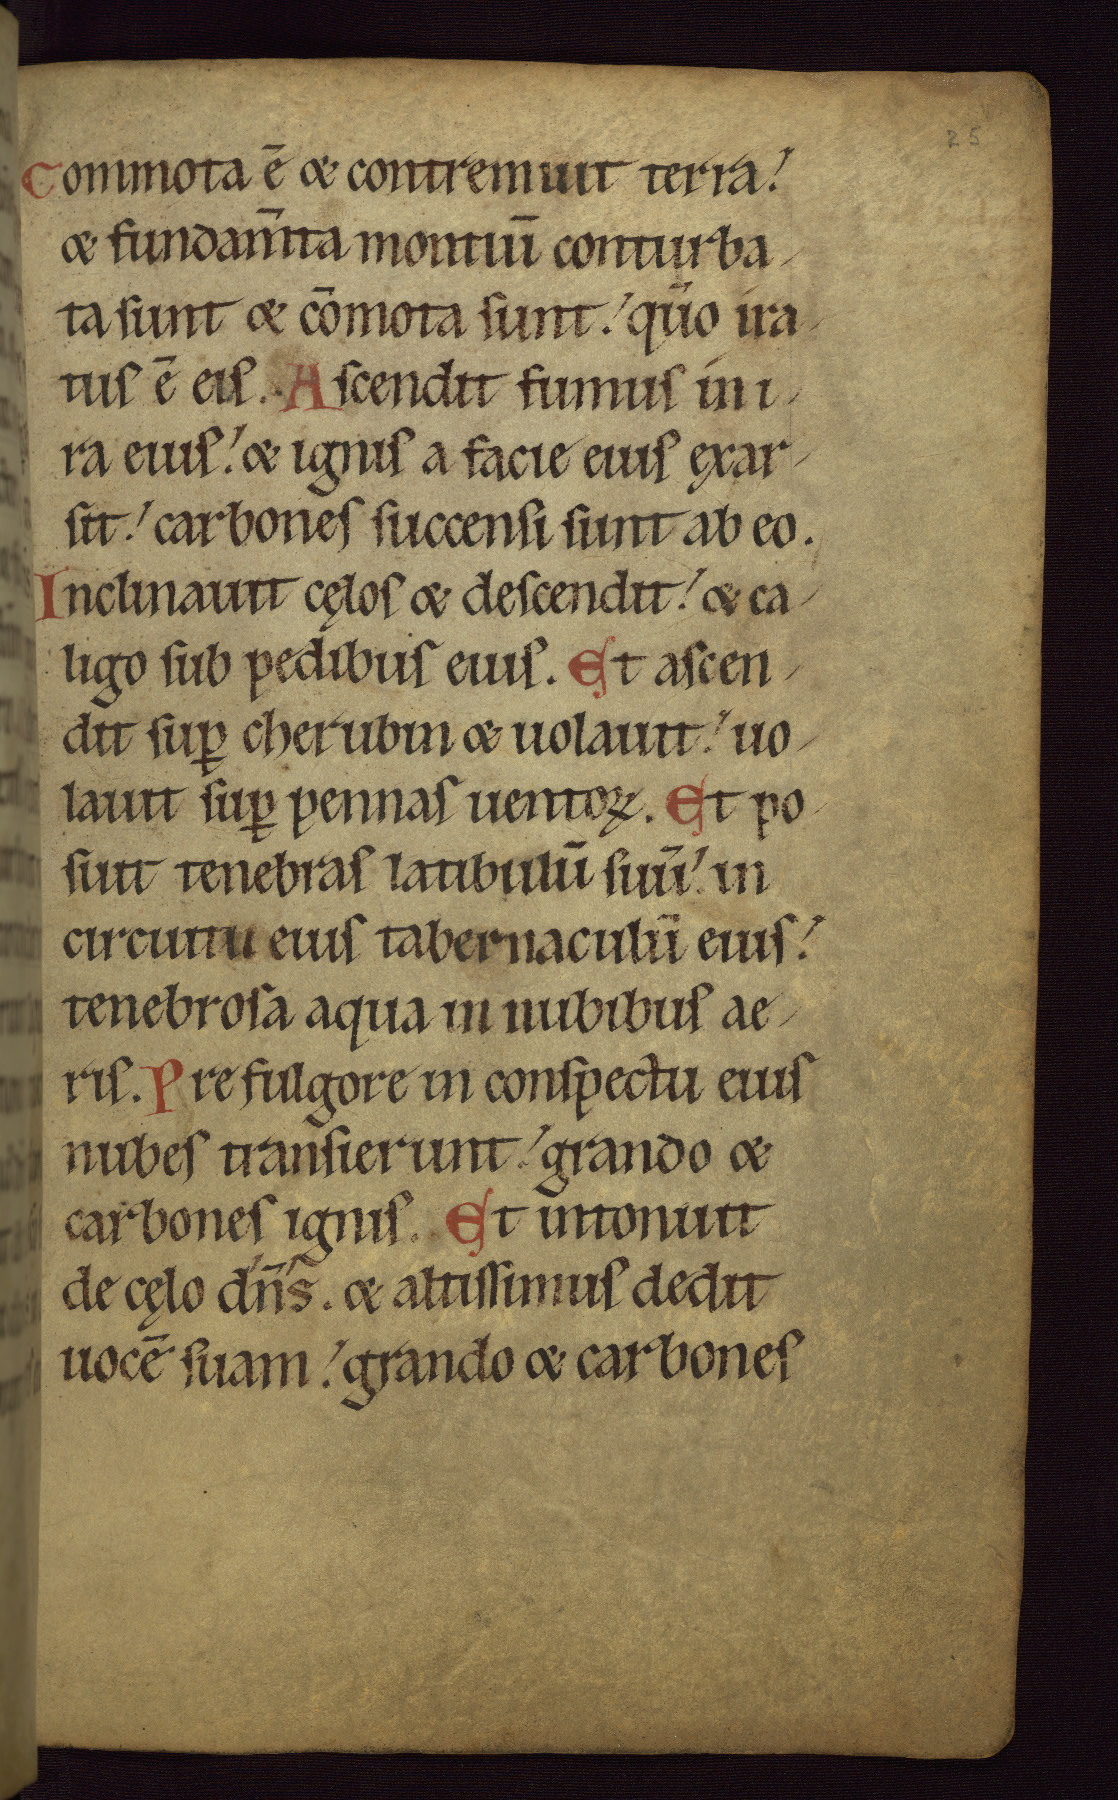 25
Commota ē & contremuit terra!
& fundam̄ta montiū conturba-
ta sunt & cōmota sunt! qm̄o ira-
tus ē eis. Ascendit fumus in i-
ra eius! & ignis a facie eius exar-
sit! carbones succensi sunt ab eo.
Inclinauit cęlos & descendit! & ca-
ligo sub pedibus eius. Et ascen-
dit suꝑ cherubin & uolauit! uo-
lauit suꝑ pennas uentoꝝ. Et po-
suit tenebras latibulū suū! in
circuitu eius tabernaculū eius!
tenebrosa aqua in nubibus ae-
ris. Pre fulgore in conspectu eius
nubes transierunt! grando &
carbones ignis. Et intonuit
de cęlo dn̄s. & altissimus dedit
uocē suam! grando & carbones